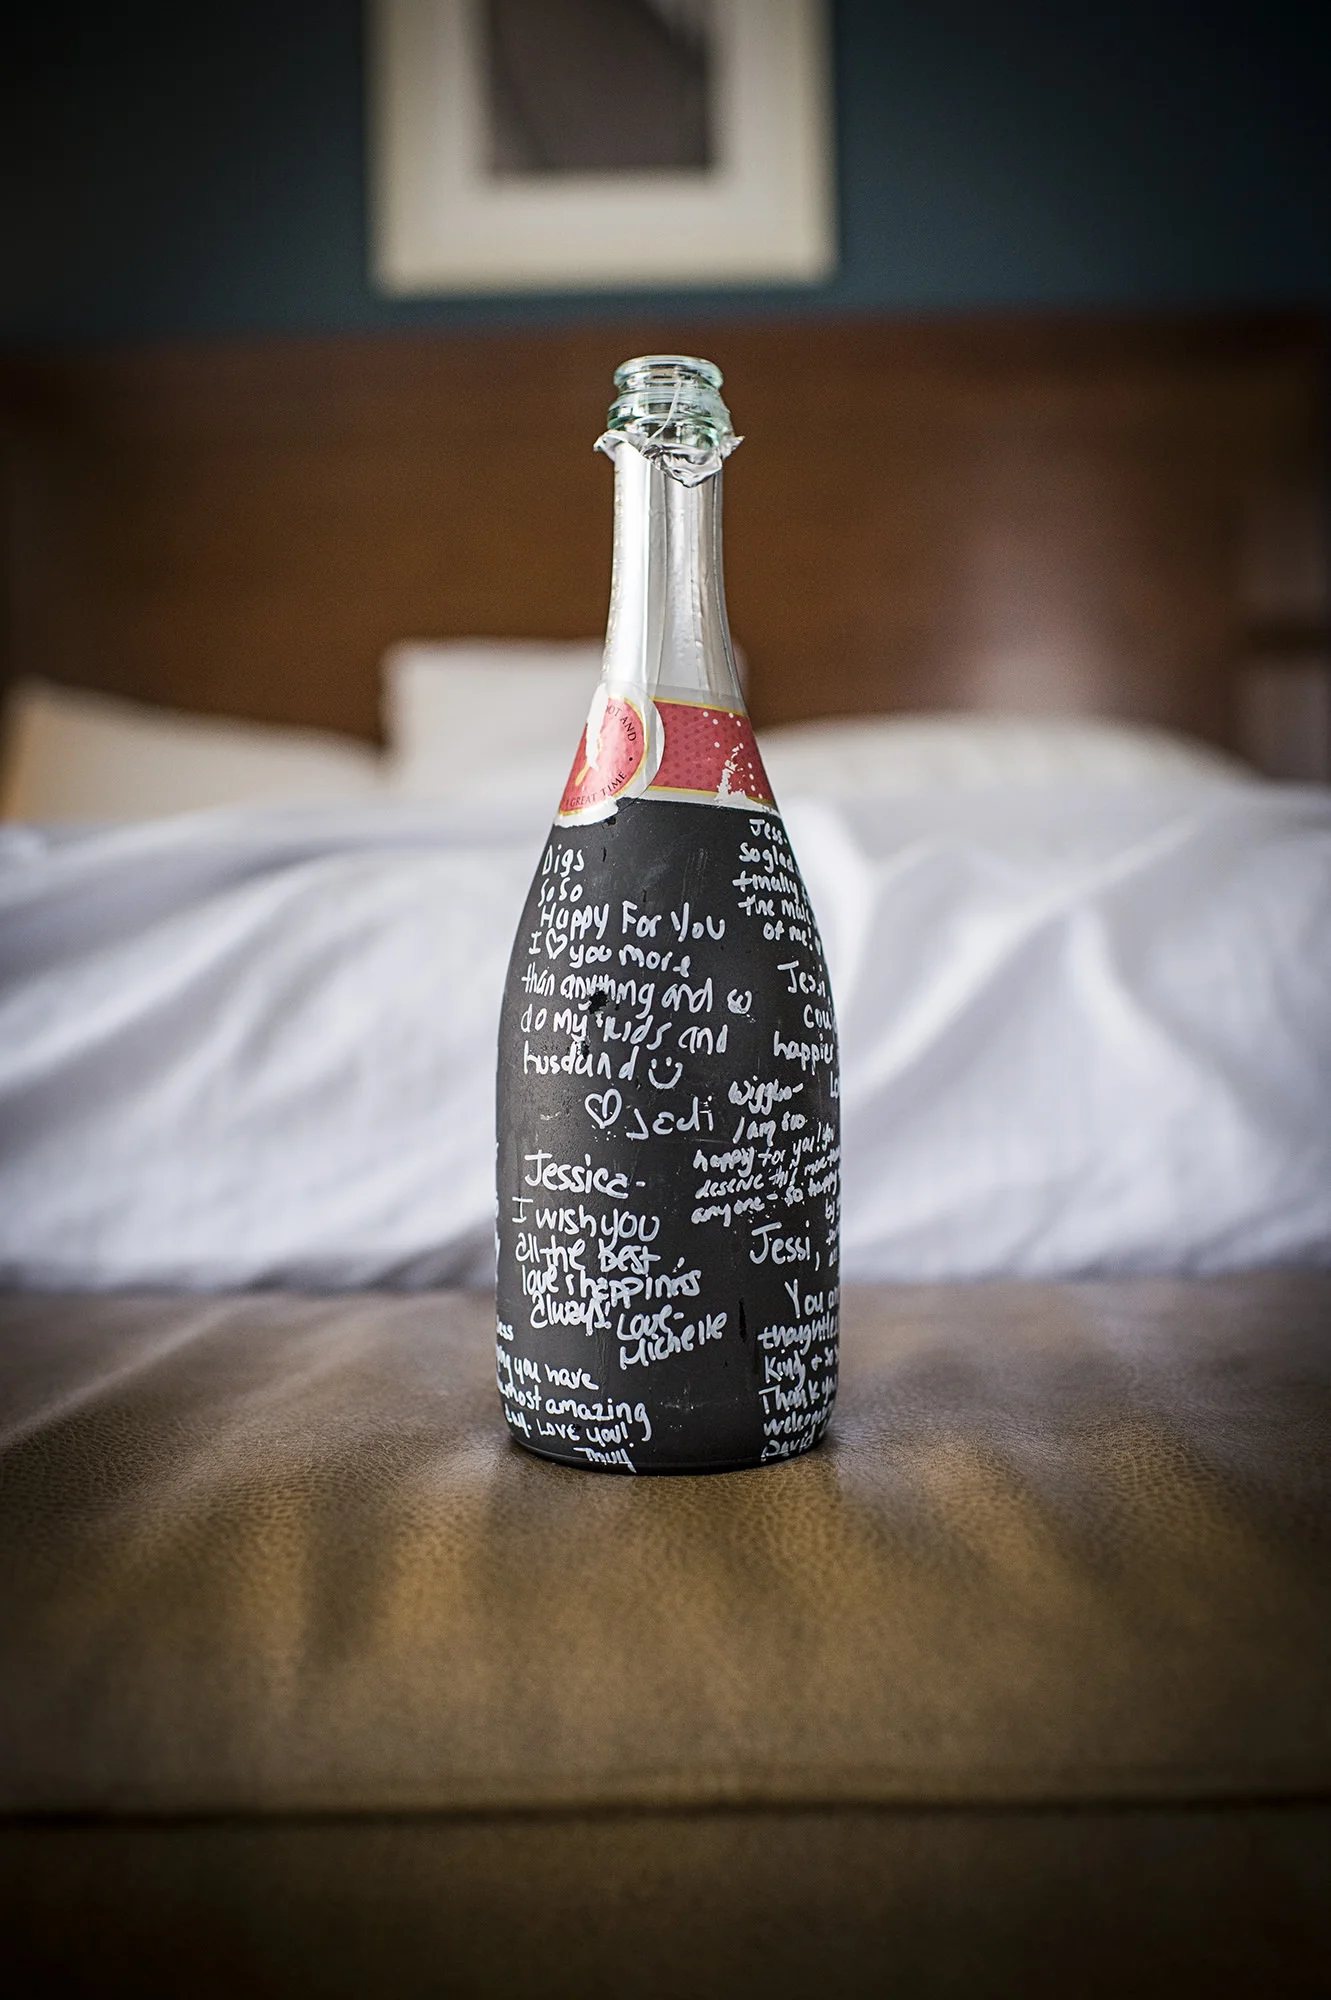 OT AND
GREAT TIME
Digs
So So
Happy For You
I ♡ you more
than anything and
do my kids and
husband
♡ Jedi
Jessica-
I wish you
all the best
love & happiness
always!
Love-
Michelle
you have
most amazing
Love you!
Jess-
So glad
finally
the
of me!
Jessi,
happier
Wiggles-
I am soo
happy for you! You
deserve this more
anyone - so happy
Jessi,
You
Kind + so
Thank you
David